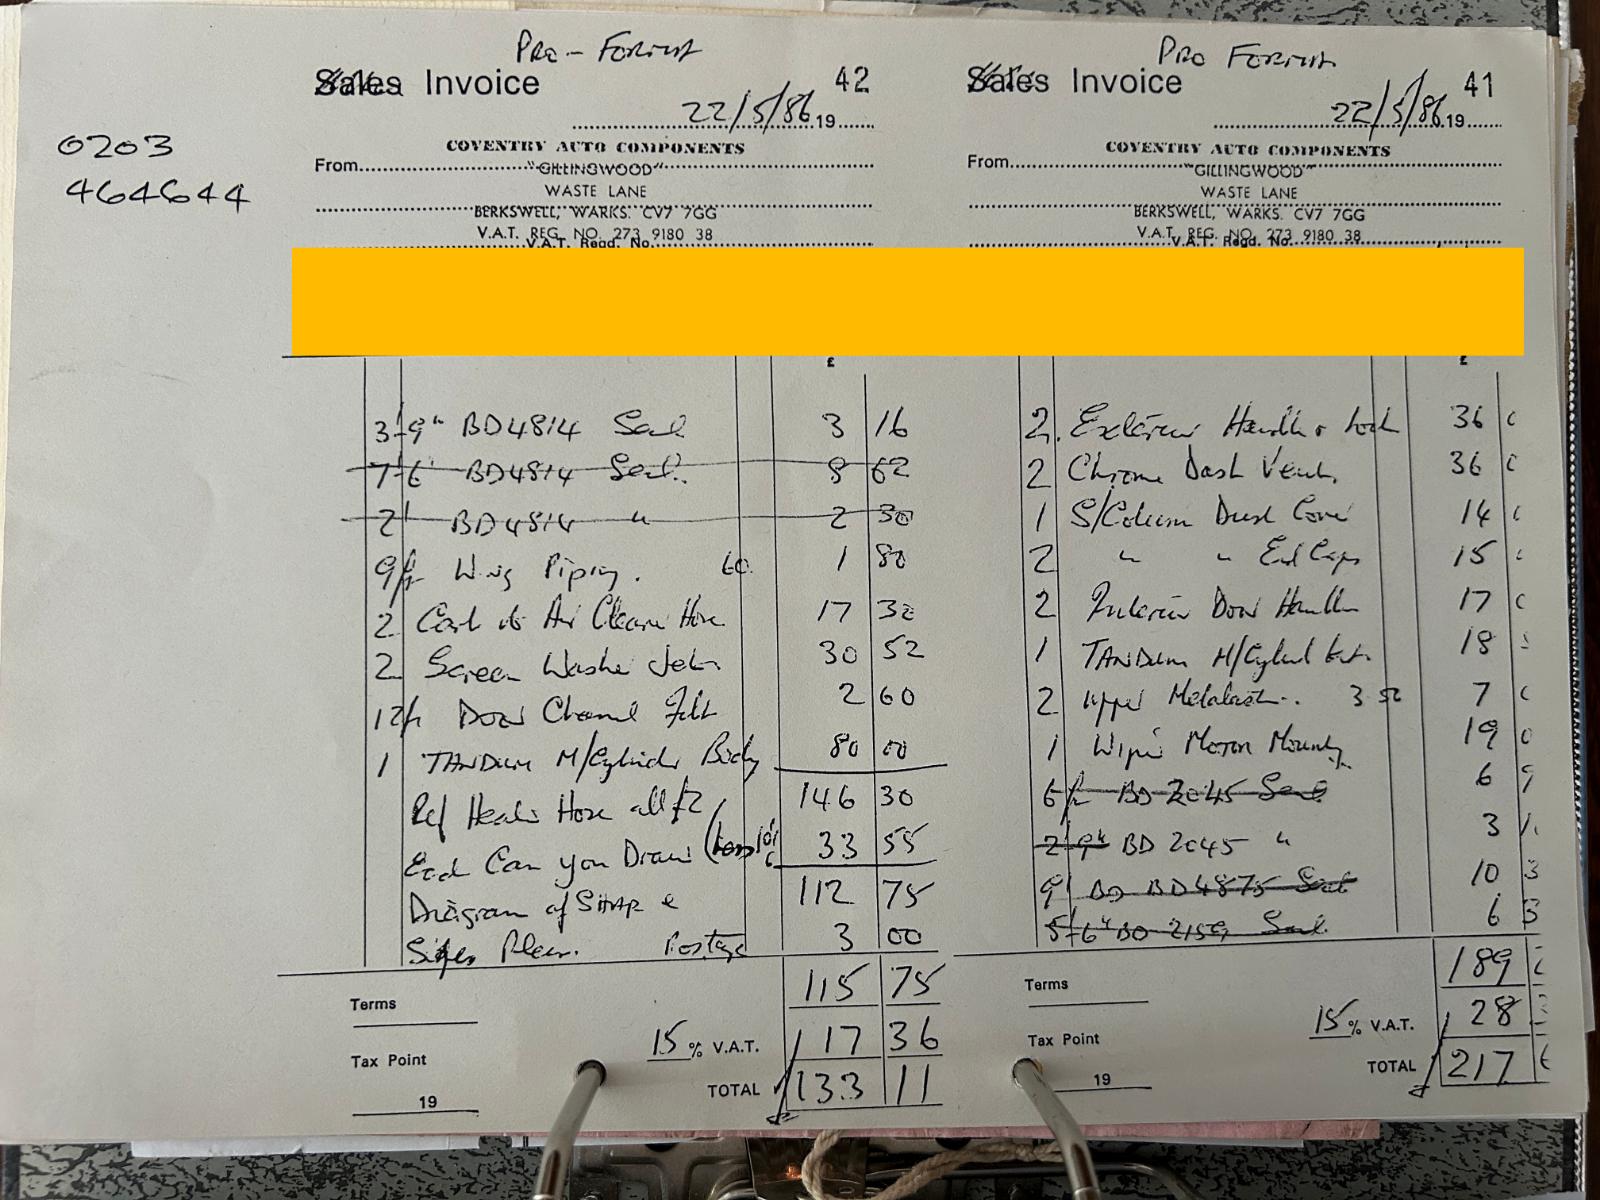 0203
464644
PRO - FORMA
Sales Invoice 42
22/5/86 19
COVENTRY AUTO COMPONENTS
From
"GILLINGWOOD"
WASTE LANE
BERKSWELL, WARKS. CV7 7GG
V.A.T. REG. NO. 273 9180 38
V.A.T. Regd. No.
£
3'-9" BD4814 Seal 3 16
7'-6" BD4814 Seal. 8 62
2' BD4814 " 2 30
9 ft Wing Piping. 60 1 80
2 Carb to Air Cleaner Hose 17 32
2 Screen Washer Jets 30 52
12 ft Door Channel Felt 2 60
1 TANDUM M/Cylinder Body 80 00
Ref Heater Hose all £2 146 30
Each Can you Draw 33 55
Diagram of SHAPE & 112 75
Sizes Please. Postage 3 00
115 75
Terms
15 % V.A.T. 17 36
Tax Point
TOTAL 133 11
19
PRO FORMA
Sales Invoice 41
22/5/86 19
COVENTRY AUTO COMPONENTS
From
"GILLINGWOOD"
WASTE LANE
BERKSWELL, WARKS. CV7 7GG
V.A.T. REG. NO. 273 9180 38
V.A.T. Regd. No.
£
2. Exterior Handle + Lock 36
2 Chrome Dash Vents 36
1 S/Column Dust Cover 14
2 " " End Caps 15
2 Interior Door Handles 17
1 TANDUM M/Cylind Kit. 18
2 Upper Metalastic.. 3 52 7
1 Wiper Motor Mounting 19
6 ft BD 2045 Seal 6
2'9" BD 2045 " 3
9' BD BD4875 Seal 10
5'-6" BD 2159 Seal. 6
189
Terms
15 % V.A.T. 28
Tax Point
TOTAL 217
19